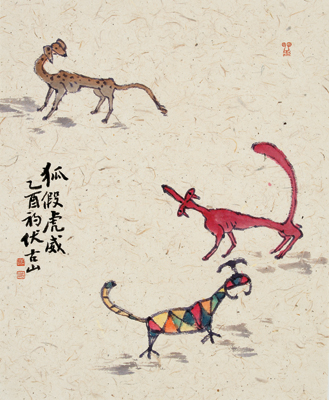 狐假虎威
乙酉初伏古山